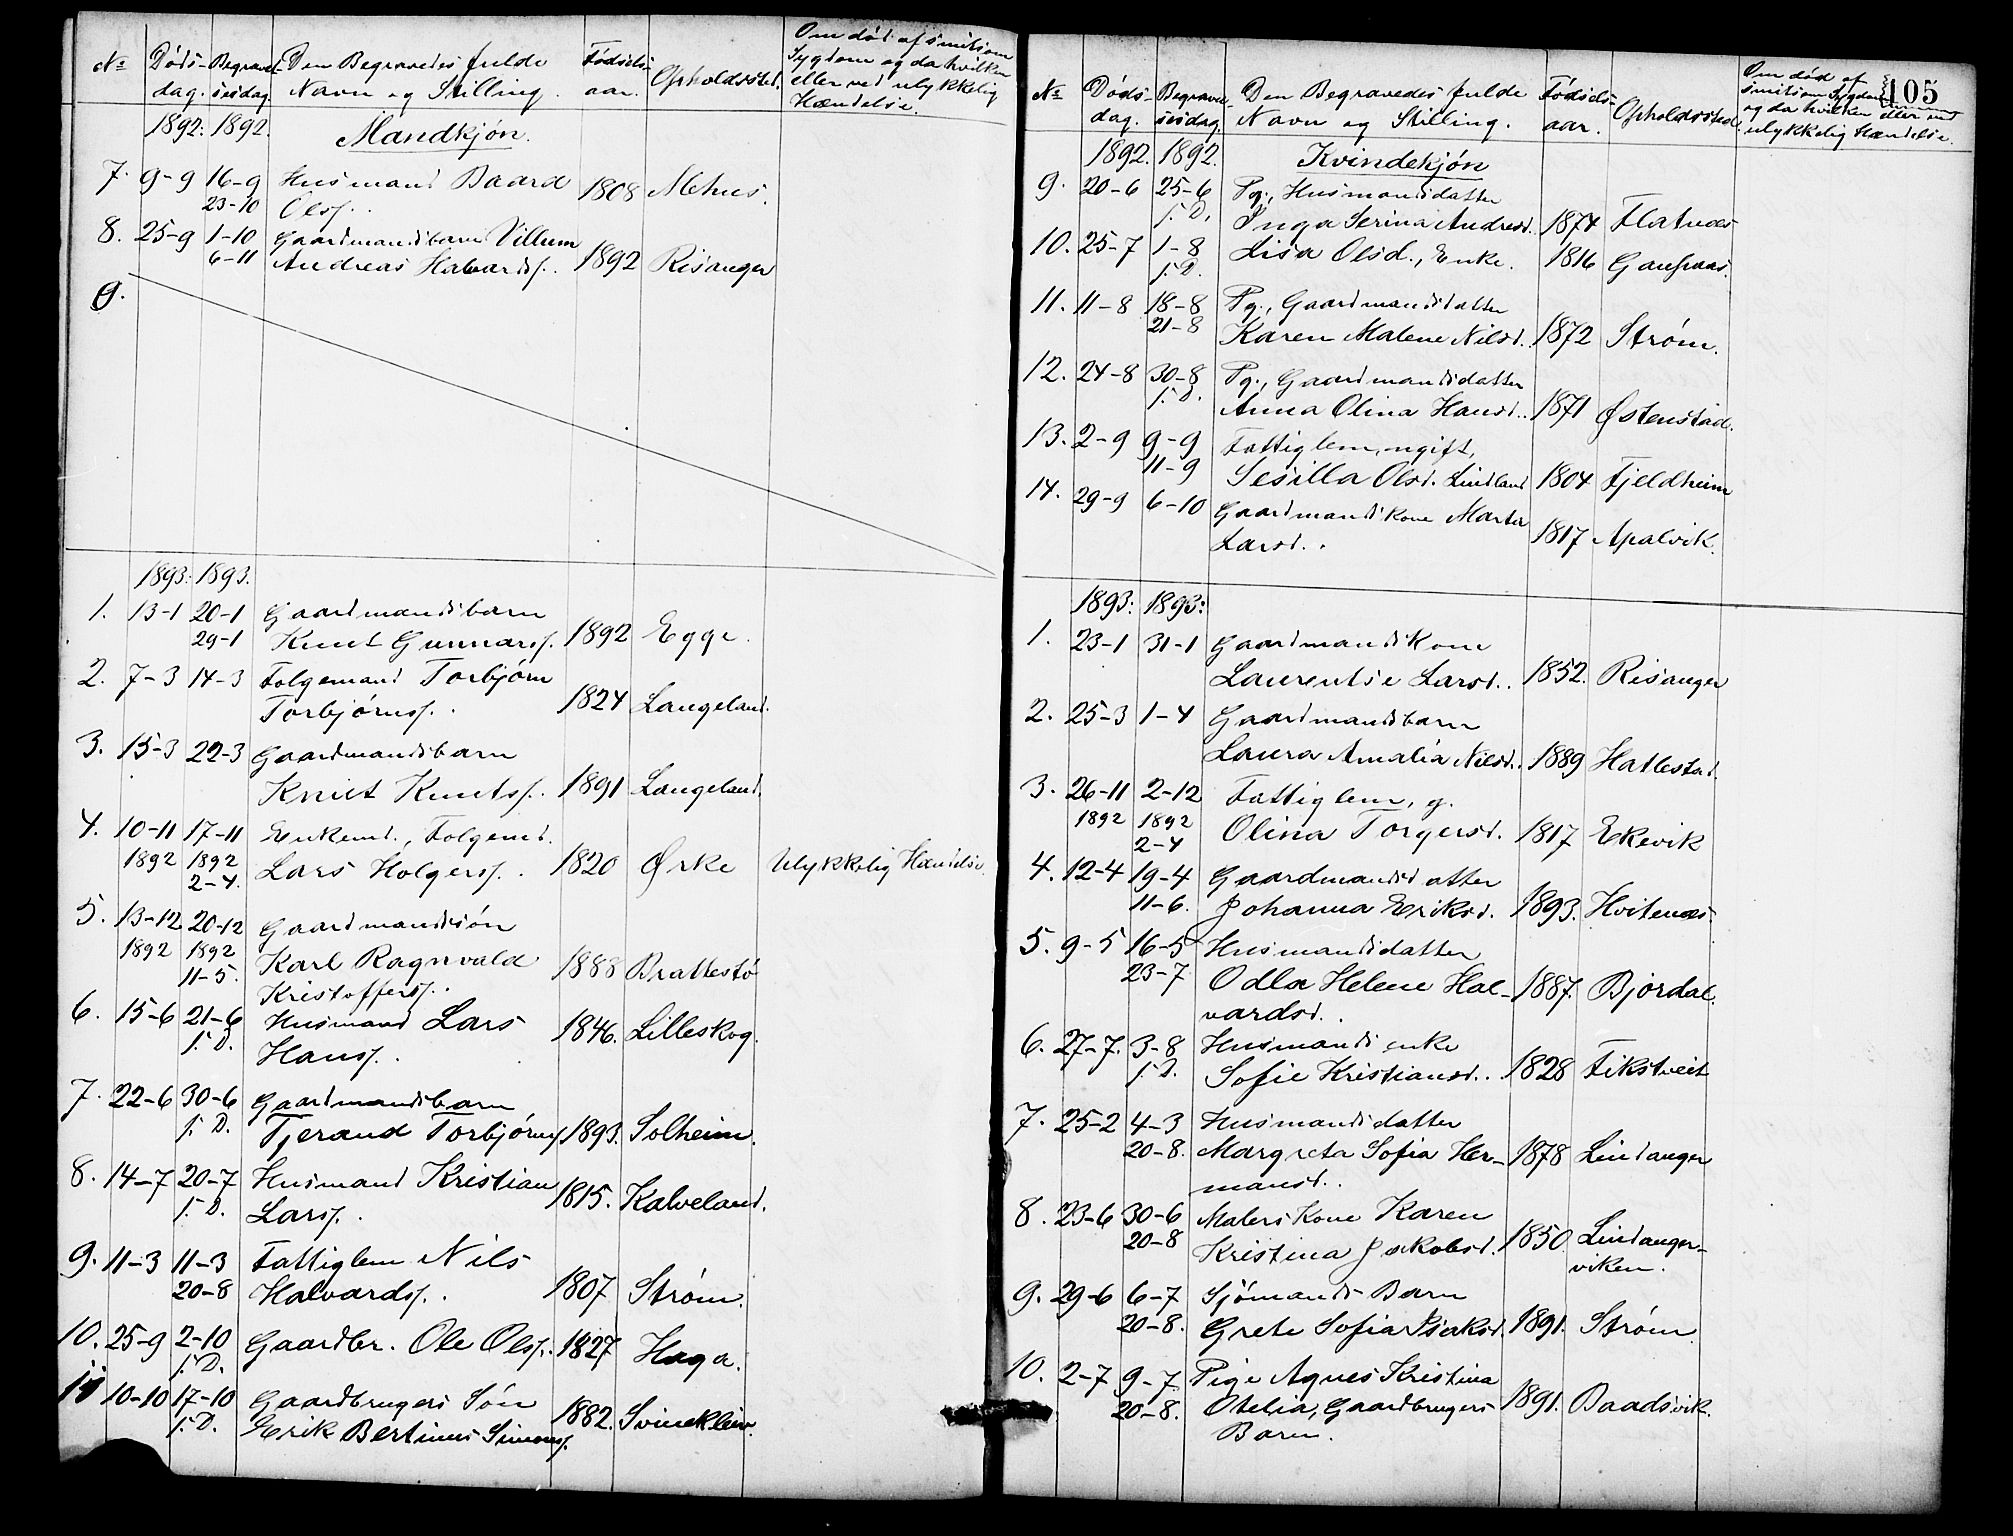 No Døds- Begravel- Den Begravedes fulde Fødsels- Opholdssted. Om død af smitsom
dag. sesdag. Navn og Stilling. aar. Sygdom og da hvilken
eller ved ulykkelig
Hændelse.
1892: 1892. Mandkjøn.
7. 9-9 16-9 Husmand Baard 1808 Mehus.
23-10 Olss.
8. 25-9 1-10 Gaardmandsbarn Villum
6-11 Andreas Halvards. 1892 Risanger
9.
1893: 1893.
1. 13-1 20-1 Gaardmandsbarn
29-1 Knut Gunnars. 1892 Egge.
2. 7-3 14-3 Folgemand Torbjørn
Torbjørns. 1824 Langeland.
3. 15-3 22-3 Gaardmandsbarn
Knut Knuts. 1891 Langeland.
4. 10-11 17-11 Enkemd., Folgemd.
1892 1892 Lars Holgers. 1820 Ørke Ulykkelig Hændelse.
2-4.
5. 13-12 20-12 Gaardmandssøn
1892 1892 Karl Ragnvald 1888 Brattestø
11-5. Kristoffers.
6. 15-6 21-6 Husmand Lars 1846. Lilleskog.
s. D. Hans.
7. 22-6 30-6 Gaardmandsbarn
s. D. Tjerand Torbjørns. 1893. Solheim.
8. 14-7 20-7 Husmand Kristian 1815. Kalveland.
s. D. Lars.
9. 11-3 11-3 Fattiglem Nils
20-8 Halvards. 1807 Strøm.
10. 25-9 2-10 Gaardbr. Ole Ols. 1827 Haga.
s. D.
11 10-10 17-10 Gaardbrugers Søn
s. D. Erik Bertinus Simons. 1882. Svineklev.
105
No Døds- Begravel- Den Begravedes fulde Fødsels- Opholdssted. Om død af
dag. sesdag. Navn og Stilling. aar. smitsom Sygdom
og da hvilken eller ved
ulykkelig Hændelse.
1892. 1892. Kvindekjøn
9. 20-6 25-6 Pg., Husmandsdatter
s. D. Inga Serina Andresd. 1874 Flatnes
10. 25-7 1-8 Lisa Olsd., Enke. 1816 Gaupaas.
s. D.
11. 11-8 18-8 Pg., Gaardmandsdatter
21-8 Karen Malene Nilsd. 1872 Strøm.
12. 24-8 30-8 Pg., Gaardmandsdatter
s. D. Anna Olina Hansd. 1871 Østenstad.
13. 2-9 9-9 Fattiglem, ugift,
11-9 Sesilla Olsd. Lindland 1804 Fjeldheim
14. 29-9 6-10 Gaardmandskone Marta
Larsd. 1817 Apalvik.
1893: 1893:
1. 23-1 31-1 Gaardmandskone
Laurentse Larsd. 1852. Risanger
2. 25-3 1-4 Gaardmandsbarn
Laura Amalia Nilsd. 1889 Hatlestad.
3. 26-11 2-12 Fattiglem, g.
1892 1892 Olina Torgersd. 1817 Ekevik
2-4
4. 12-4 19-4 Gaardmandsdatter
11-6. Johanna Eriksd. 1893. Hvitenæs.
5. 9-5 16-5 Husmandsdatter
23-7 Odla Helene Hal- 1887. Bjordal.
vardsd.
6. 27-7. 3-8 Husmandsenke
s. D. Sofie Kristiansd. 1828 Fikstveit
7. 25-2 4-3 Husmandsdatter
20-8. Margreta Sofia Her- 1878 Lindanger
mansd.
8. 23-6 30-6 Malers Kone Karen
20-8 Kristina Jakobsd. 1850. Lindanger-
viken.
9. 29-6 6-7 Sjømands-Barn
20-8. Grete Sofia Isaksd. 1891. Strøm.
10. 2-7 9-7. Pige Agnes Kristina
20-8. Otelia, Gaardbrugers 1891. Baadsvik.
Barn.